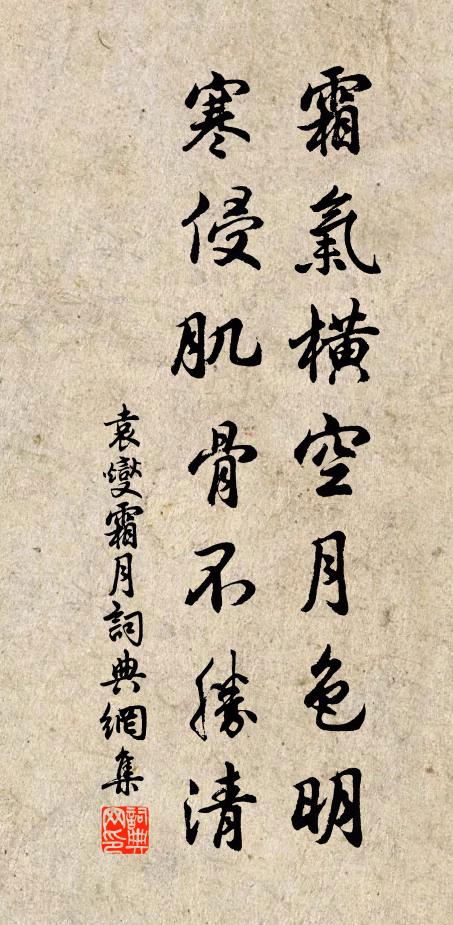 霜氣橫空月色明
寒侵肌骨不勝清
袁燮霜月詞典網集
詞典網印